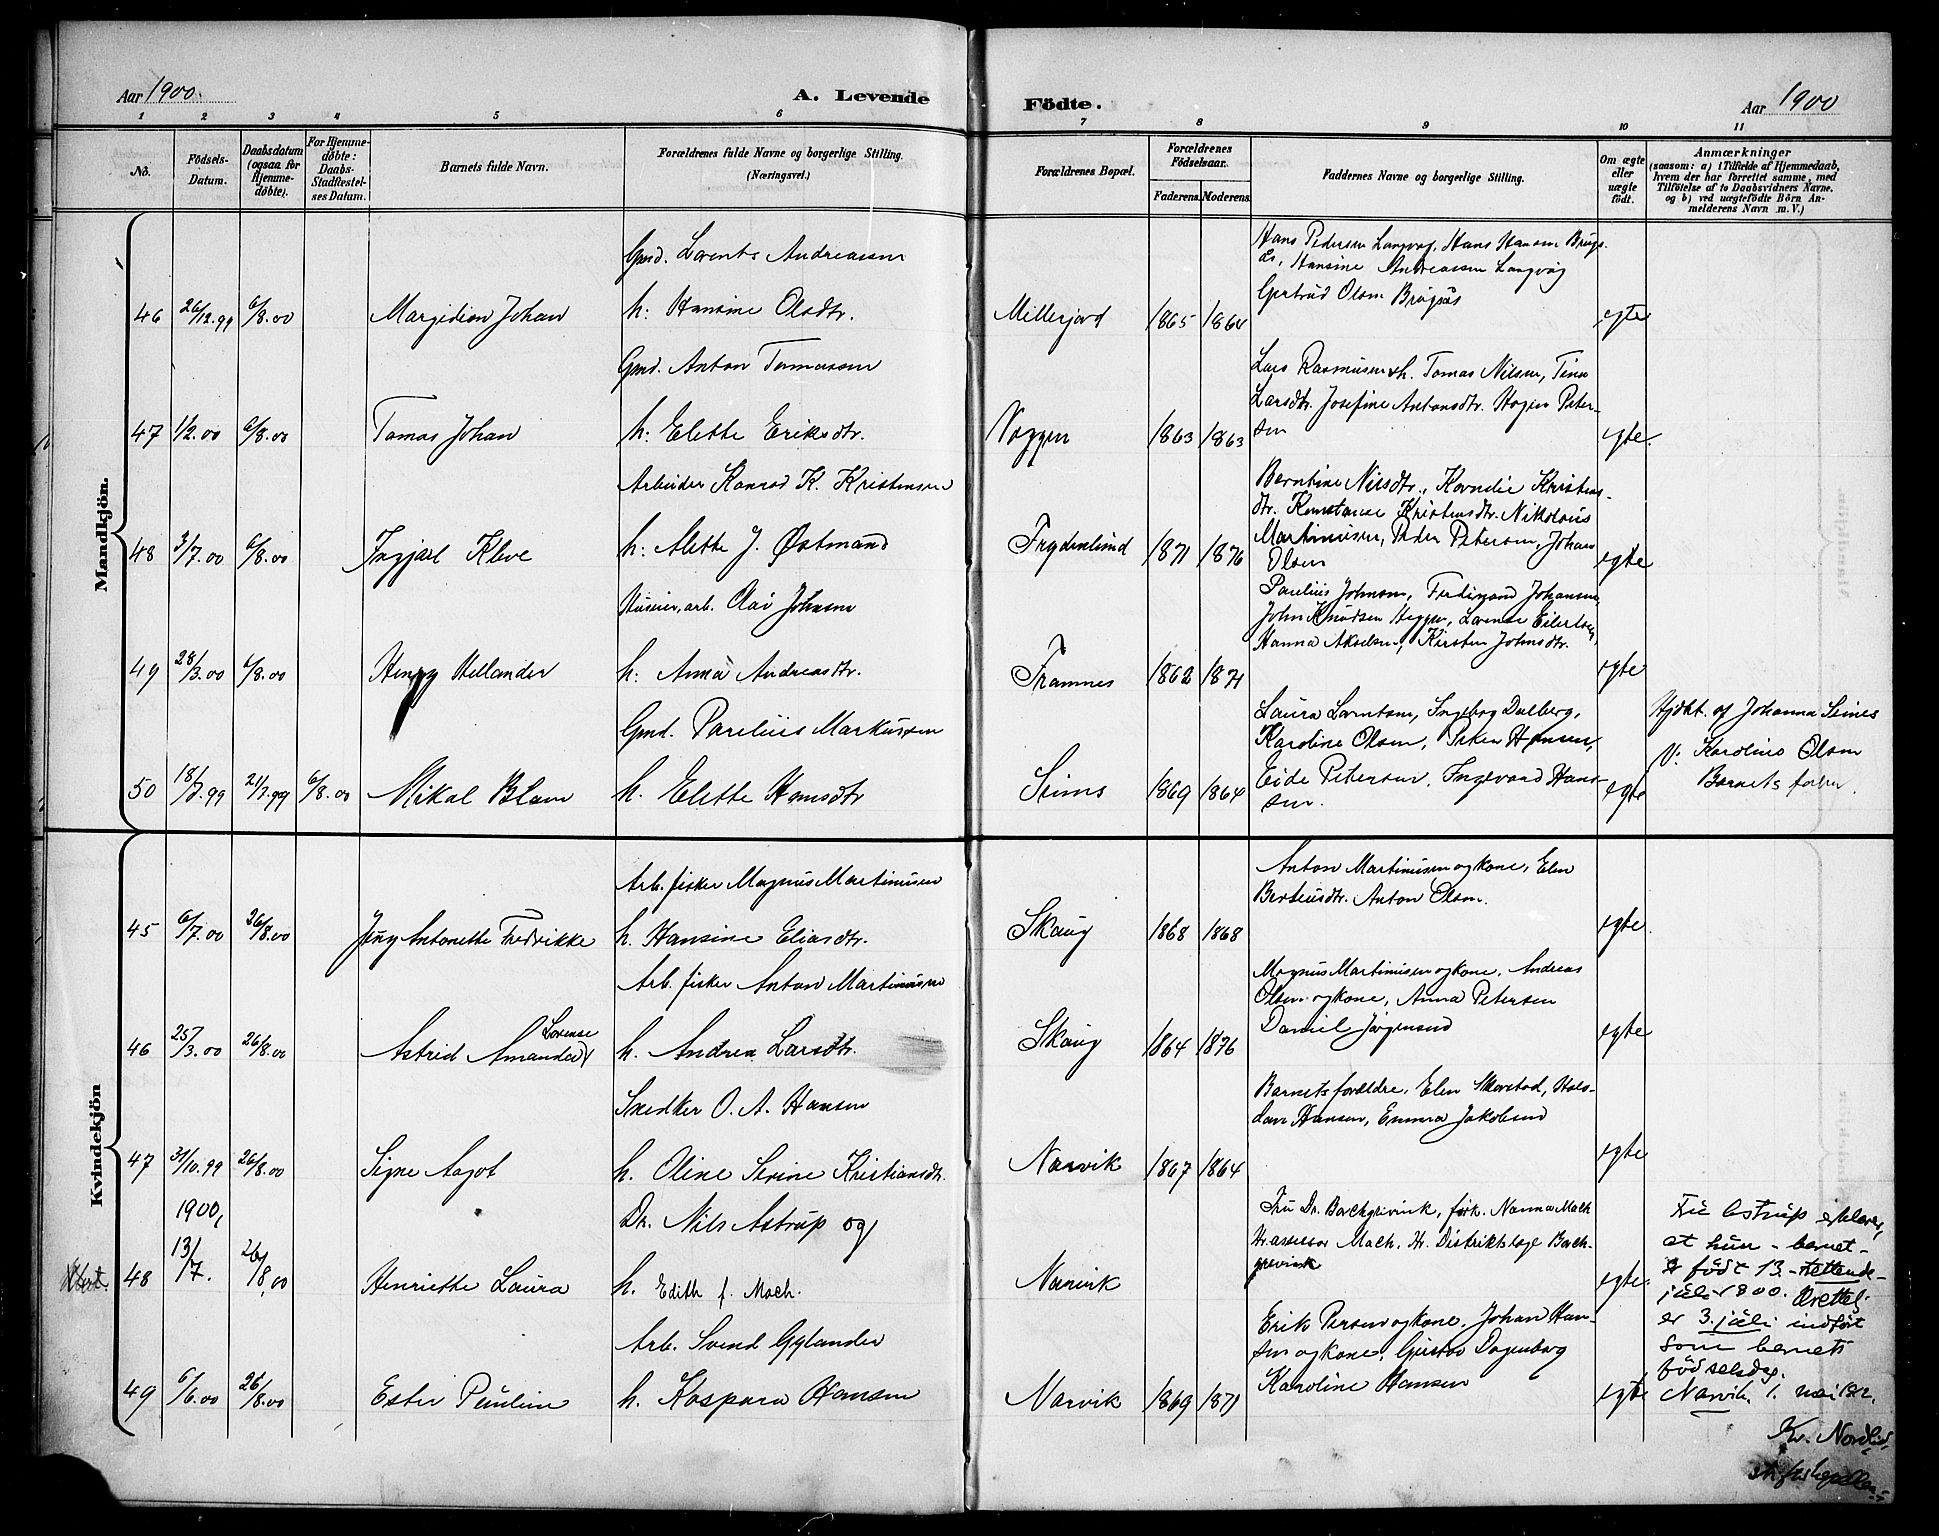 Aar 1900.
A. Levende Födte.
Aar 1900
1 2 3 4 5 6 7 8 9 10 11
No.
Födsels-Datum.
Daabsdatum (ogsaa for Hjemme-döbte).
For Hjemme-döbte: Daabs-Stadfæstel-ses Datum.
Barnets fulde Navn.
Forældrenes fulde Navne og borgerlige Stilling.
(Næringsvei.)
Forældrenes Bopæl.
Forældrenes Födselsaar.
Faderens. Moderens.
Faddernes Navne og borgerlige Stilling.
Om ægte eller uægte födt.
Anmærkninger
(saasom: a) i Tilfælde af Hjemmedaab,
hvem der har forrettet samme, med
Tilföielse af to Daabsvidners Navne.
og b) ved uægtefödte Börn An-
melderens Navn m. V.)
Mandkjön.
Gmd. Lorents Andreassen
Hans Pedersen Langvåg, Hans Hansen Brugs-
ås, Hansine Andreassen Langvåg
Gertrud Olsen Brugsås
46 26/12.99 6/8.00 Margidion Johan h: Hansine Olsdtr. Millerjord 1865 1864 egte
Gmd. Anton Tomassen
Lars Rasmussen &h. Tomas Nilsen, Tina
Larsdtr. Josefine Antonsdtr. Hagen Peter-
sen
47 1/2.00 6/8.00 Tomas Johan h: Elette Eriksdtr. Noggen 1863 1863 egte.
Arbeider Konrad K. Kristensen
Berntine Nilsdtr., Kornelie Kristens-
dtr. Konstanse Kristensdtr. Nikolaus
Martinusen, Peder Petersen, Johan
Olsen
48 3/7.00 6/8.00 Ingjarl Kleve h: Alette J. Østmand Frydenlund 1871 1876 egte
Husmer, arb. Olai Johnsen
Paulius Johnsen, Ferdinand Johansen,
John Knudsen Heggen, Lorense Eilertsen,
Hanna Akselsen, Kirsten Johnsdtr.
49 28/3.00 6/8.00 Henry Hellander h: Anna Andreasdtr. Framnes 1862 1871 egte
Gmd. Parelius Markussen
Laura Lorntsen, Ingeborg Dalberg,
Karoline Olsen, Peter Hansen,
Eide Petersen, Ingevard Han-
sen.
Hjdbt. af Johanna Seines
V: Karolius Olsen
Barnets fader.
50 18/7.99 21/7.99 6/8.00 Mikal Blam h. Elette Hansdtr Seines 1869 1864 egte
Kvindekjön
Arb. fisker Magnus Martinusen
Anton Martinusen og kone, Elen
Berteusdtr. Anton Olsen.
45 6/7.00 26/8.00 Jeny Antonette Fredrikke h. Hansine Eliasdtr. Skaug 1868 1868 egte
Arb. fisker Anton Martinusen
Magnus Martinusen og kone, Andreas
Olsen og kone, Anna Petersen
Daniel Jørgensend
Lorense
46 25/3.00 26/8.00 Astrid Amanda h. Andrea Larsdtr. Skaug 1864 1876 egte
Snedker O. A. Hansen
Barnets forældre, Elen Skavstad, Hal-
dan Hansen, Emma Jakobsend
47 31/10.99 26/8.00 Signe Aagot h. Oline Serine Kristiansdtr. Narvik 1867 1864 egte
1900,
Dr. Nils Astrup og
Fru Dr. Borchgrevink, frk. Nanna Mack
Hr. assessor Mack, Hr. Distriktslæge Borch-
grevink
48 13/7. 26/8.00 Henriette Laura h. Edith f. Mack. Narvik egte.
Fru Astrup erklærer,
at hun - barnet -
er født 13. - trettende -
juli - 1900. Urettel.
er 3. juli indført
som barnets
fødselsdag.
Narvik 1. mai 1912.
Kr. Nordlid
stiftskapellan
Arb. Svend Gylander
Erik Persen og kone, Johan Han-
sen og kone, Gustav Dagenborg
Karoline Hansen
49 6/6.00 26/8.00 Ester Pauline h. Kaspara Hansen Narvik 1869 1871 egte